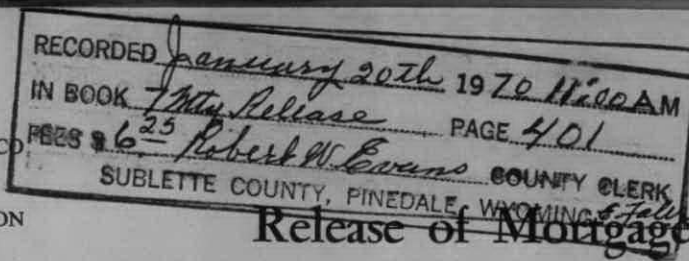 RECORDED January 20th 1970 11:00 AM
IN BOOK 7 Mtg Release PAGE 401
FEES $ 6 25 Robert W Evans COUNTY CLERK
SUBLETTE COUNTY, PINEDALE, WYOMING
CO
ON
Release of Mortgage